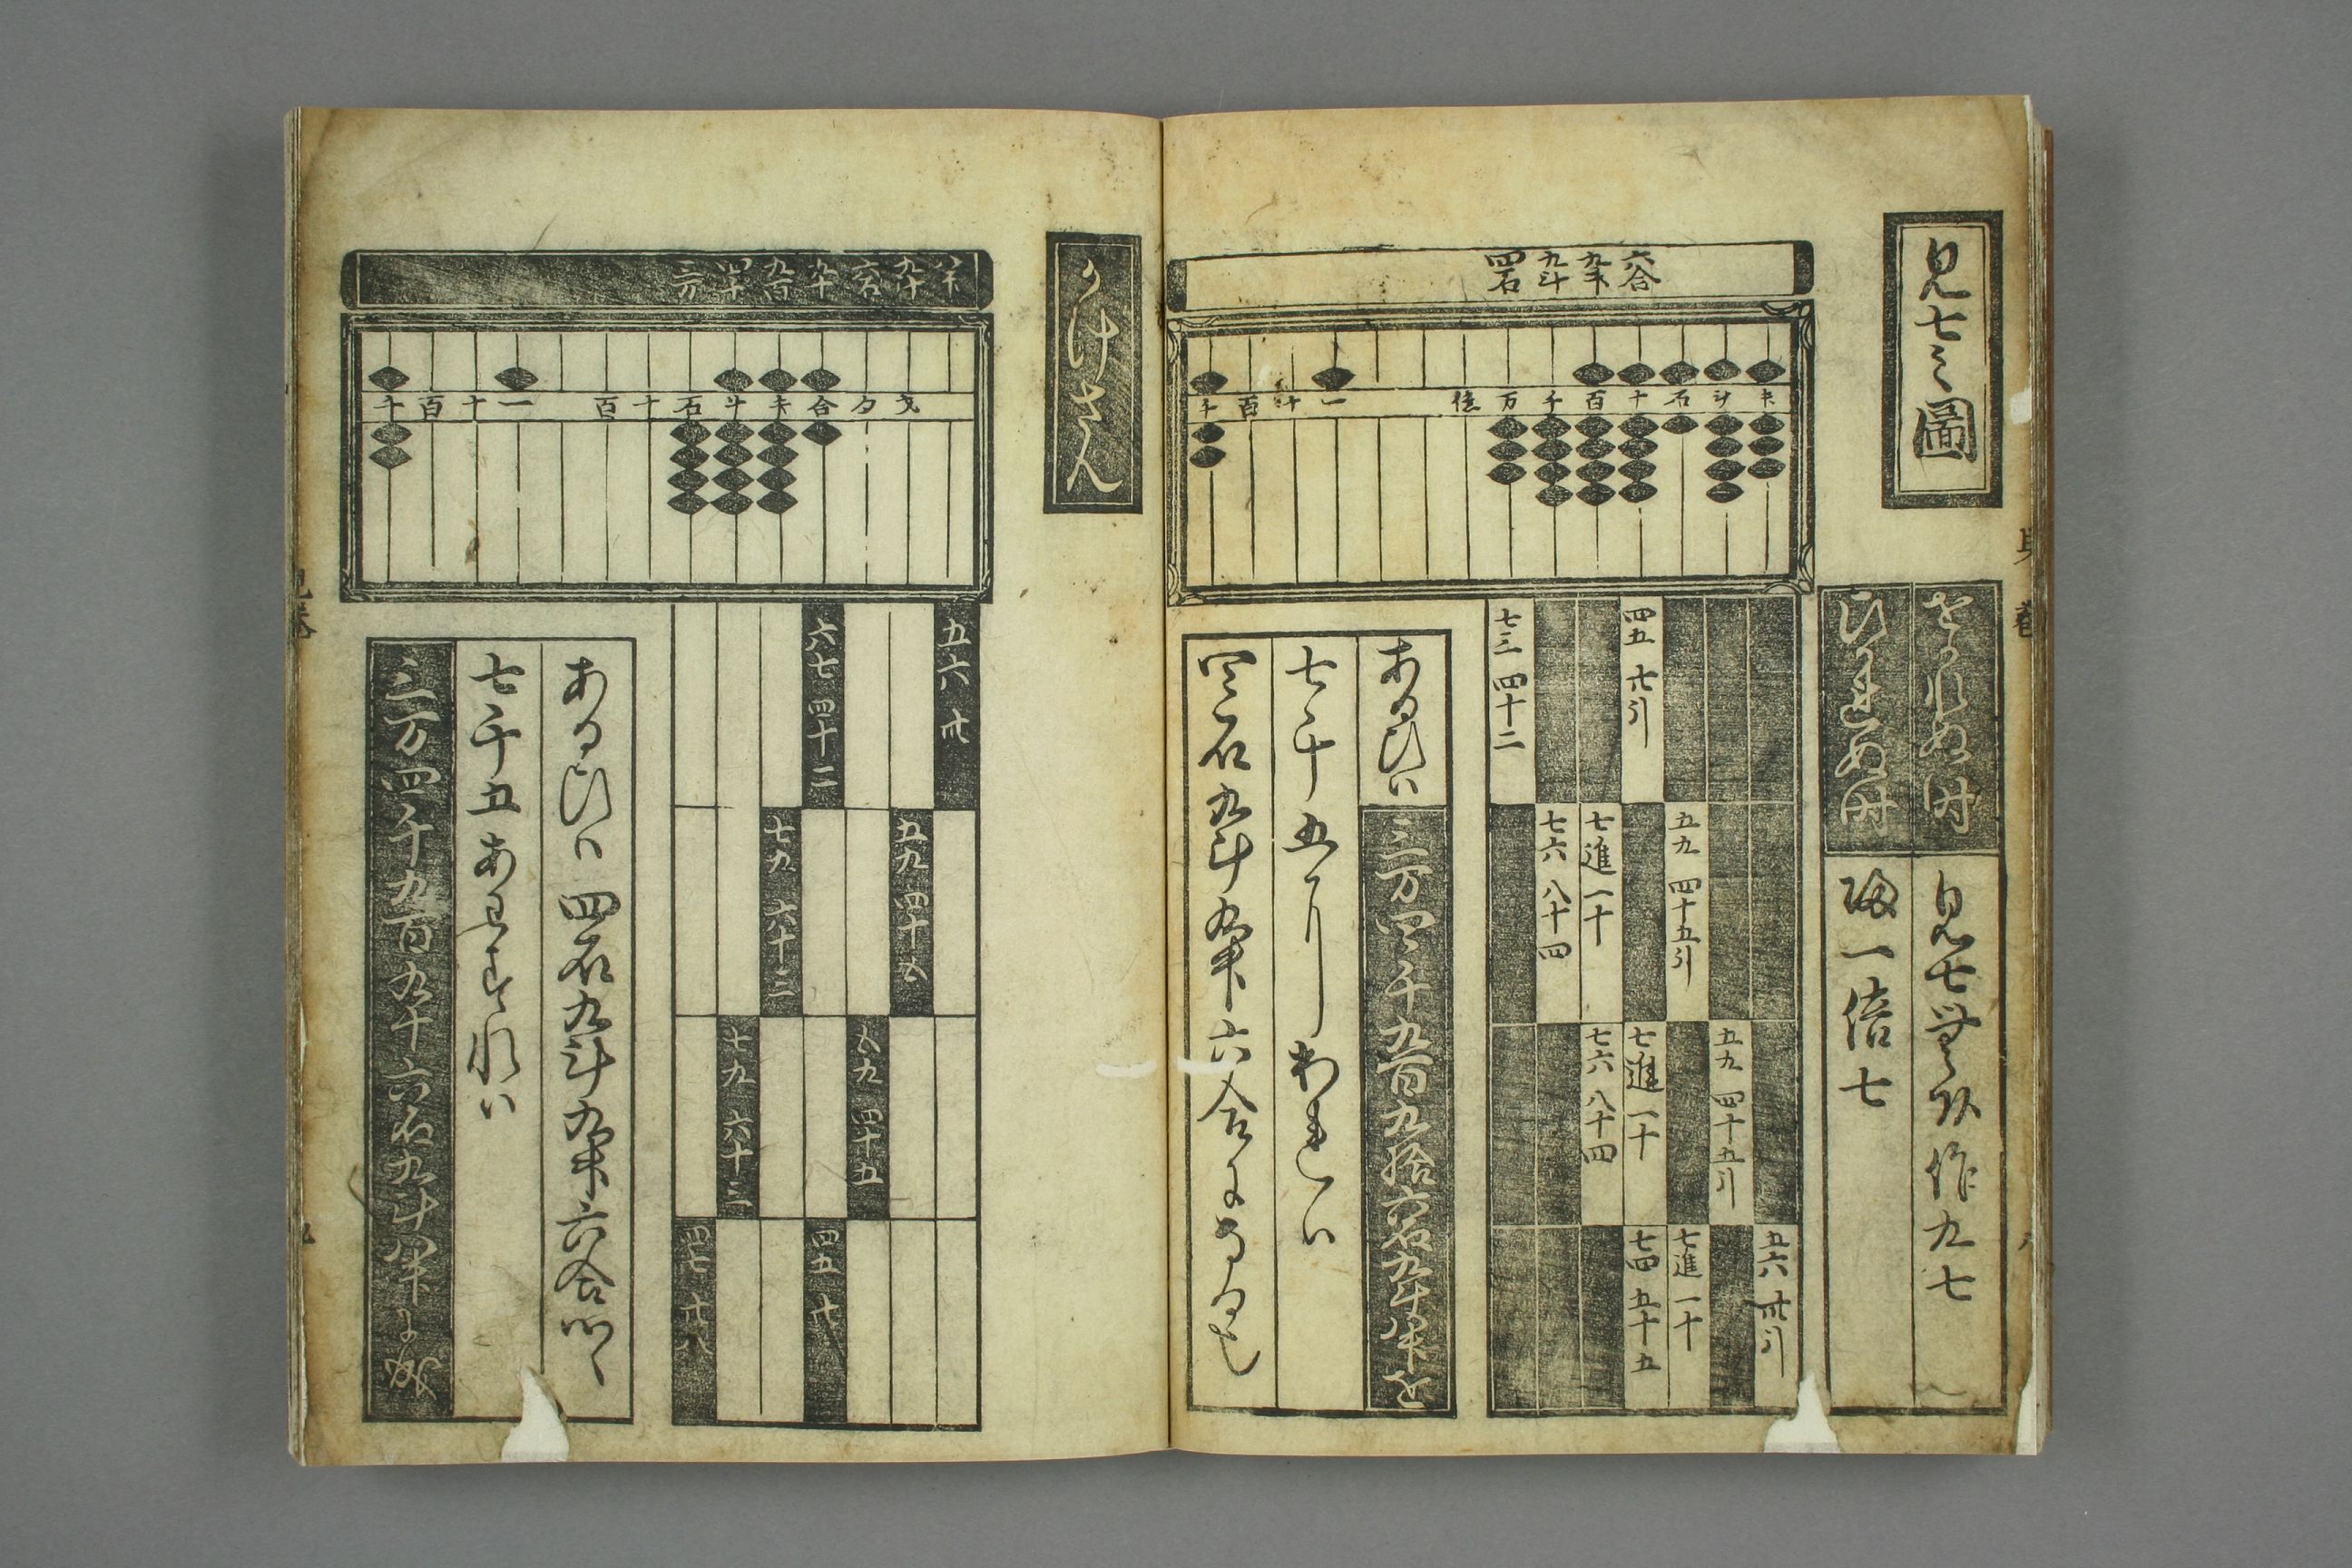 見七之圖
見七無頭作九七
帰一倍七
六合
九升
九斗
四石
千 百 十 一 億 万 千 百 十 石 斗 升
七三 四十二
四五 廿引
七六 八十四
七進一十
五九 四十五引
七六 八十四
七進一十
五九 四十五引
七四 五十五
七進一十
五六 卅引
あるひハ
三万四千九百九拾六石九斗八升を
七千五
四石九斗九升六合になる也
かけさん
三万
四千
九百
九十
六石
九斗
八升
千 百 十 一 百 十 石 斗 升 合 夕 才
五六 卅
六七 四十二
五九 四十五
七九 六十三
五九 四十五
七九 六十三
四五 廿
四七 廿八
あるひハ四石九斗九升六合
七千五あはすれハ
三万四千九百九十六石九斗八升に成